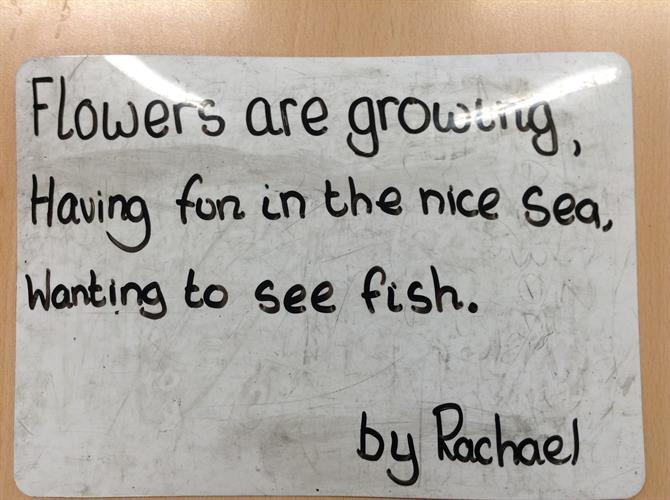 Flowers are growing,
Having fun in the nice sea,
Wanting to see fish.
by Rachael